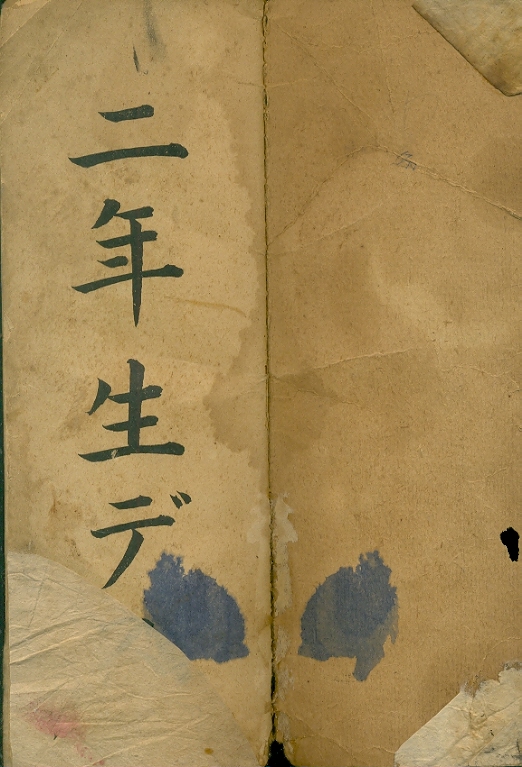 二年生デ